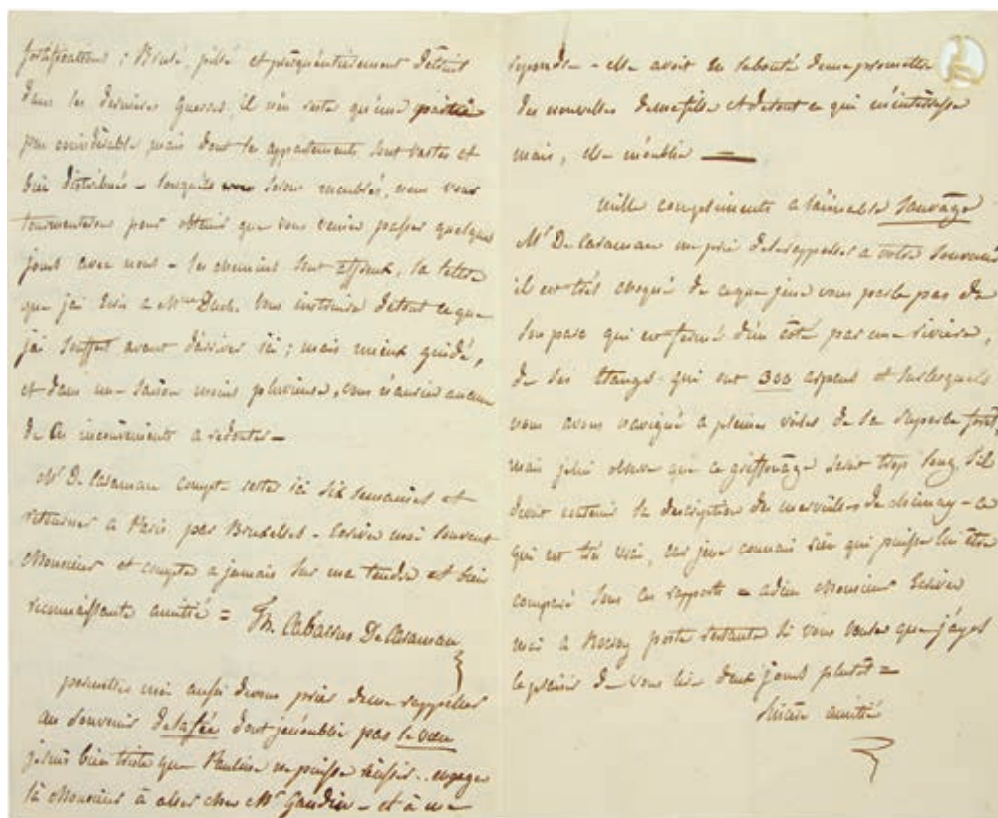 fortifications ; Brulé, pillé et presqu'entièrement détruit
dans les dernières guerres, il n'en reste qu'une partie
peu considérable mais dont les appartements sont vastes et
bien distribués – lorsqu'ils seront meublés, nous vous
tourmenterons pour obtenir que vous veniez passer quelques
jours avec nous – les chemins sont affreux, la lettre
que j'ai écrit a Mme Duch. vous instruira detout ceque
j'ai souffert avant d'arriver ici ; mais mieux guidé,
et dans une saison moins pluvieuse, vous n'auriez aucun
de ces inconvenients a redouter –
Mr D. Caraman compte rester ici six semaines et
retourner a Paris par Bruxelles – Ecrivez moi souvent
Monsieur et comptez a jamais sur ma tendre et bien
reconnaissante amitié = Th. Cabarrus De Caraman
permettez moi aussi devous prier deme rappeller
au souvenir delafée dont jen'oublie pas le vœu
je suis bien triste que Pauline ne puisse réussir .. engagez
là Monsieur à aller chez Mr Gaudin – et à me
repondre – elle avoit eu labonté deme promettre
des nouvelles demafille et detout ce qui m'intéresse
mais, elle m'oublie —
mille compliments a l'aimable sauvage
Mr D. Caraman me prie dele rappeller a votre souvenir
il est très choqué de ceque jene vous parle pas de
son parc qui est fermé d'un côté par une riviere,
de ses étangs qui ont 300 arpens et surlesquels
nous avons navigué a pleines voiles de la superbe forêt,
mais je lui observe que ce griffonage seroit trop long s'il
devoit contenir la description des merveilles de chimay – ce
qui est très vrai, car jene connais rien qui puisse lui être
comparé sous ces rapports = adieu Monsieur Ecrivez
moi a Rocroy poste restante si vous voulez que j'aye
le plaisir de vous lire deux jours plutot =
Sincère amitié